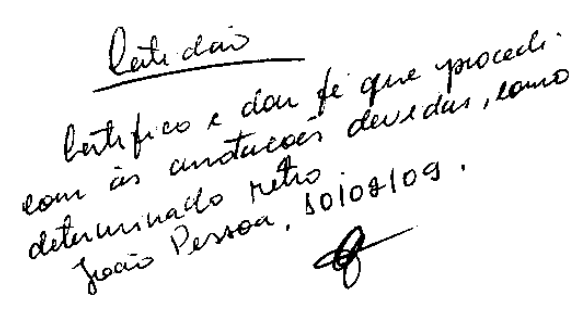 Certidão
Certifico e dou fé que procedi
com às anotacões devidas, como
determinado retro.
João Pessoa, 10/08/09.